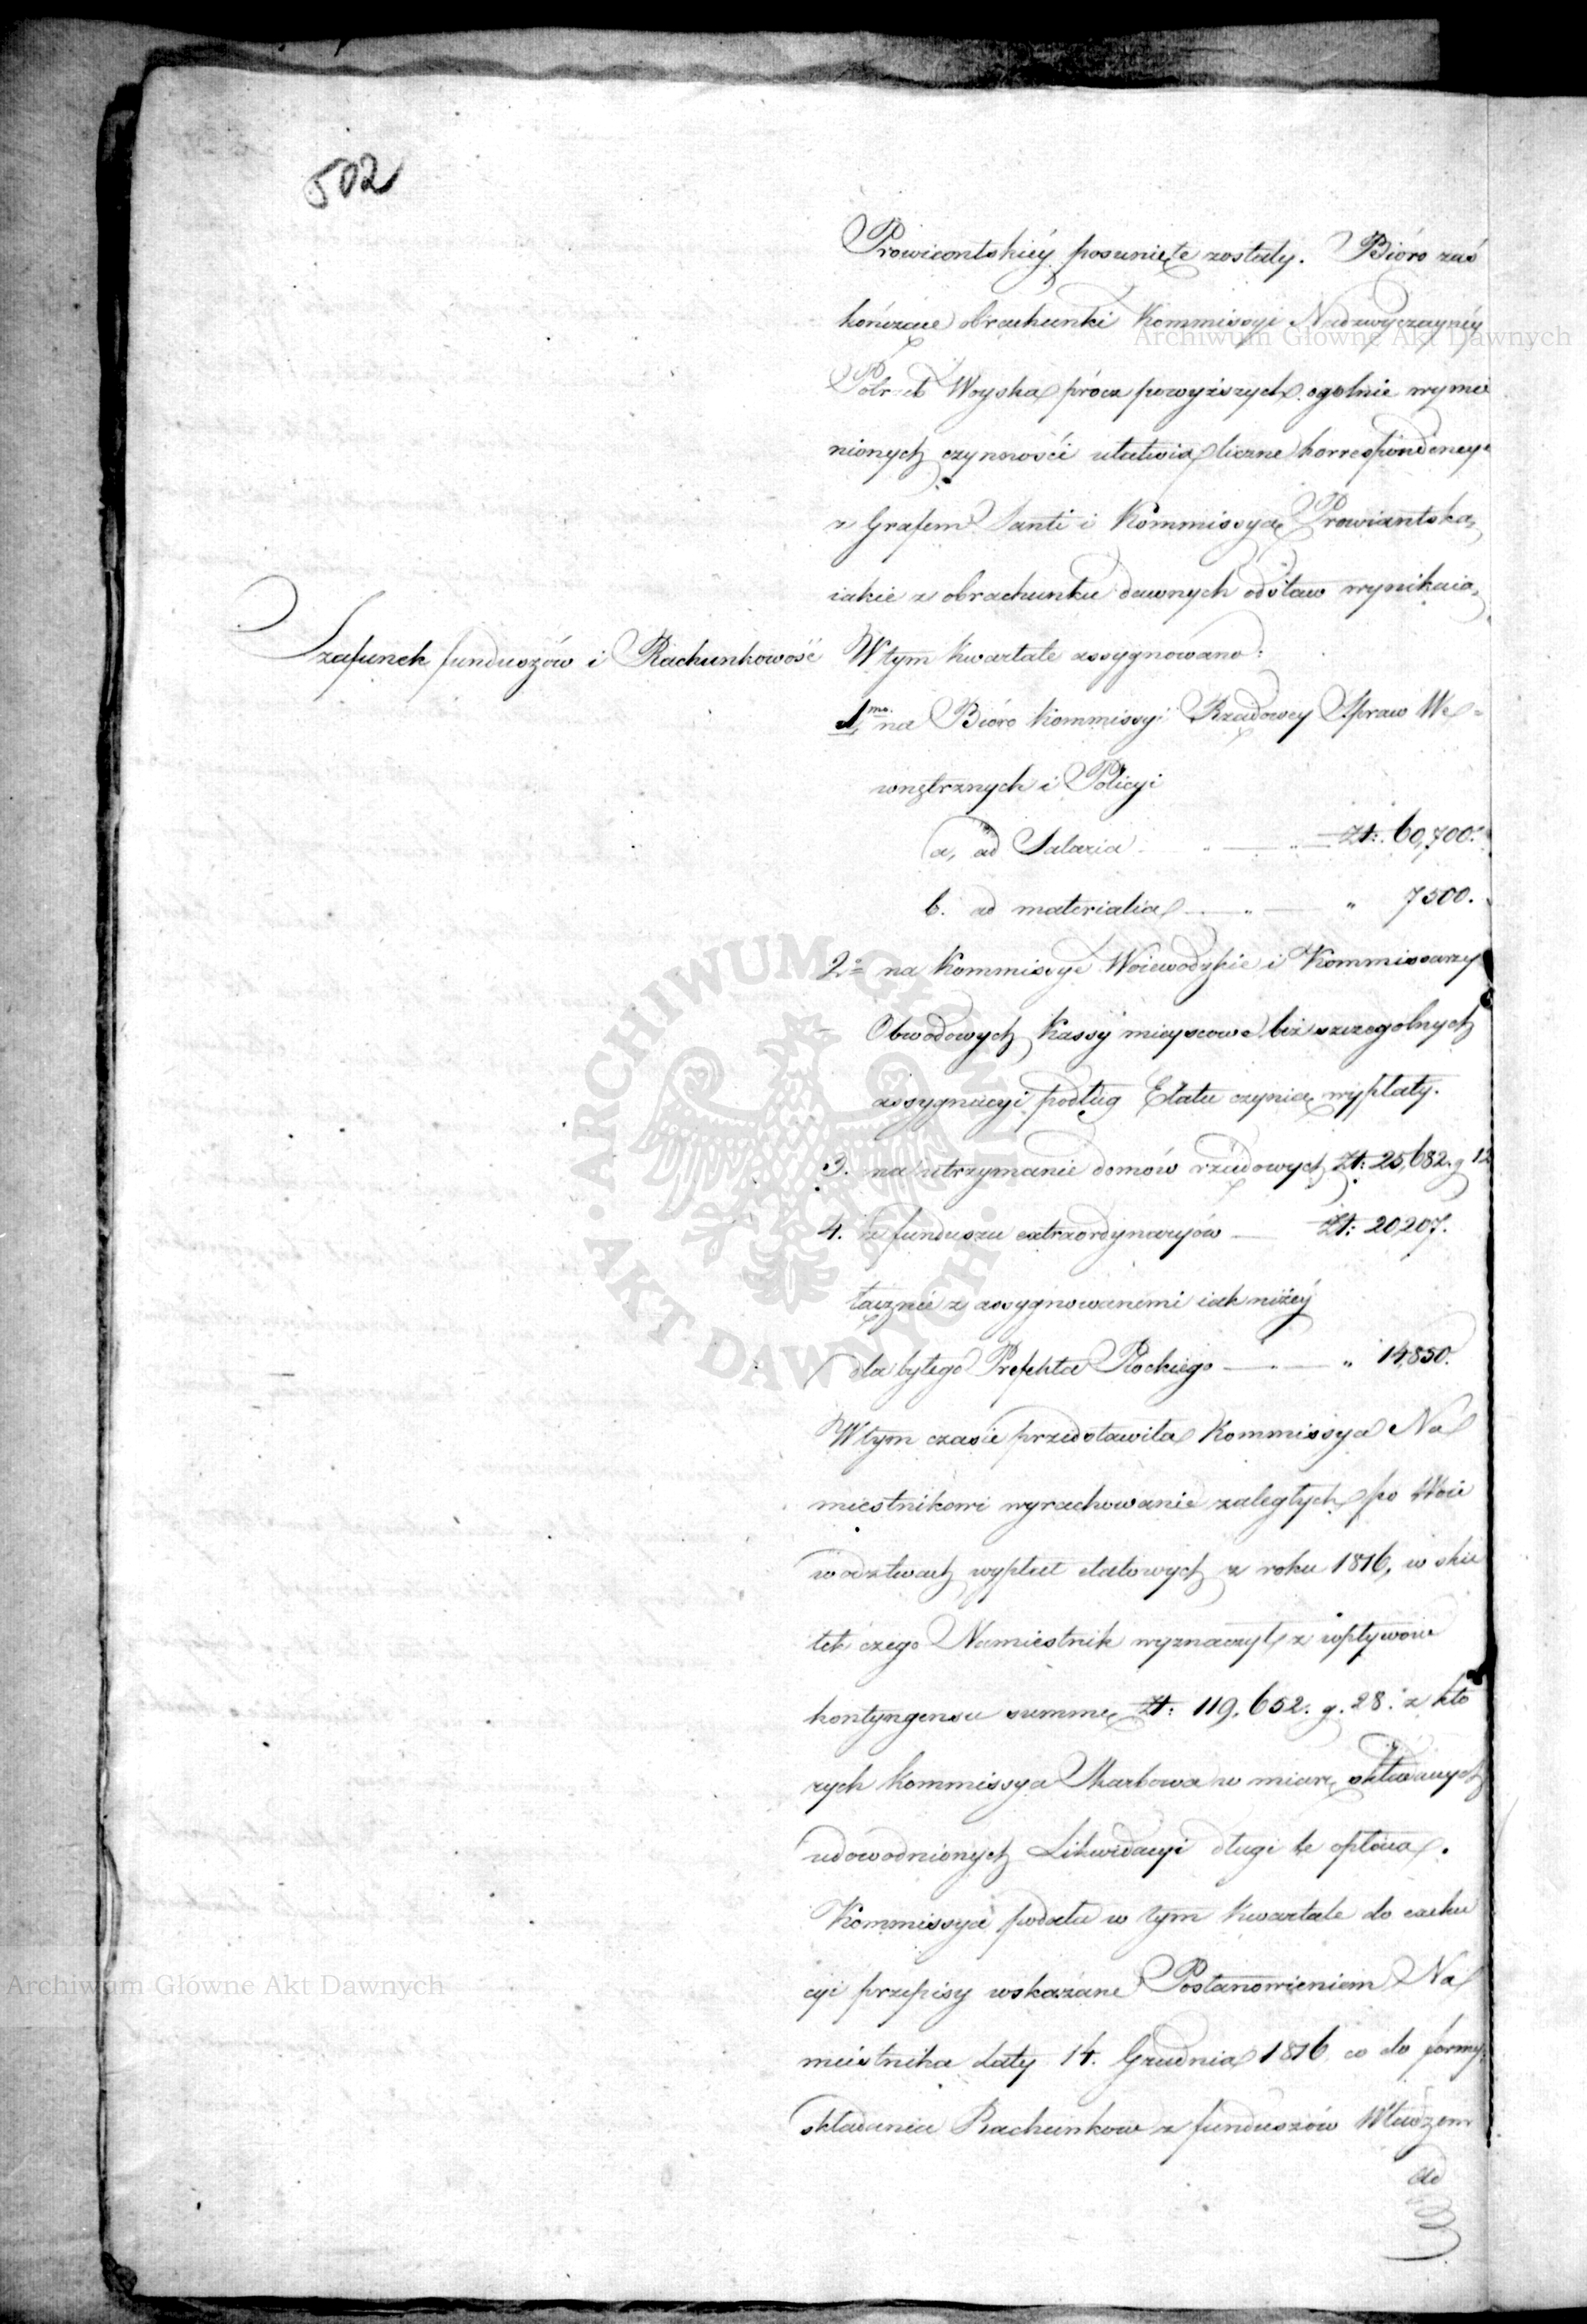 502
Prowiantskiéy posunięte zostały. Bióro zaś
kończące obrachunki Kommissyi Nadzwyczaynéy
Potrzeb Woyska prócz powyższych ogolnie wymie
nionych czynności ułatwia liczne korrespondencye
z Grafem Santi i Kommissyą Prowiantską,
iakie z obrachunku dawnych odstaw wynikaią,
Szafunek funduszów i Rachunkowość
W tym kwartale assygnowano:
1mo. na Bióro Kommissyi Rządowey Spraw We=
wnętrznych i Policyi
a, ad Salaria Zł: 60,700.
b. ad materialia " 7500.
2o na Kommissye Woiewodzkie i Kommissarzy
Obwodowych Kassy mieyscowe bez szczegolnych
assygnacyi podług Etatu czynią wypłaty.
3. na utrzymanie domów rządowych Zł: 25,682. g 12
4. z funduszu extraordynaryjów Zł: 20207.
łącznie z assygnowanemi iak niżéy
dla byłego Prefekta Płockiego " 14,850.
W tym czasie przedstawiła Kommissya Na
miestnikowi wyrachowanie zaległych po Woie
wodztwach wypłat etatowych z roku 1816, w sku
tek czego Namiestnik wyznaczył z wpływów
kontyngensu summę Zł: 119,652. g. 28. z któ
rych Kommissya Skarbowa w miarę składanych
udowodnionych Likwidacyi długi te opłaca.
Kommissya podała w tym kwartale do exeku
cyi przepisy wskazane Postanowieniem Na
miestnika daty 14. Grudnia 1816 co do formy
składania Rachunkow z funduszów Władzom
do
Archiwum Główne Akt Dawnych
ARCHIWUM GŁÓWNE AKT DAWNYCH
Archiwum Główne Akt Dawnych